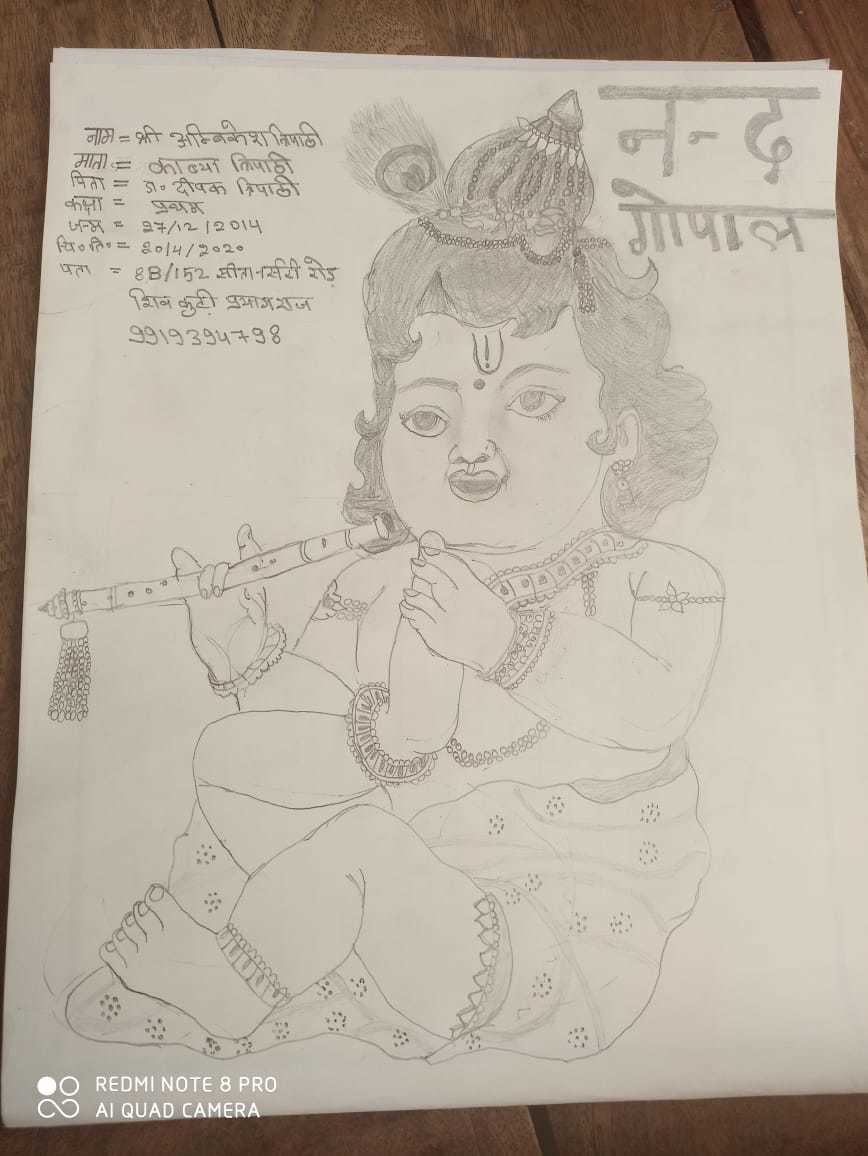 नाम = श्री अम्बिकेश त्रिपाठी
माता = काव्या त्रिपाठी
पिता = डा॰ दीपक त्रिपाठी
कक्षा = प्रथम
जन्म = 27/12/2014
चि॰ति॰ = 20/4/2020
पता = 8B/152 सीता र्सिटी रोड़
शिव कुटी प्रयागराज
9919394798
नन्द
गोपाल
REDMI NOTE 8 PRO
AI QUAD CAMERA